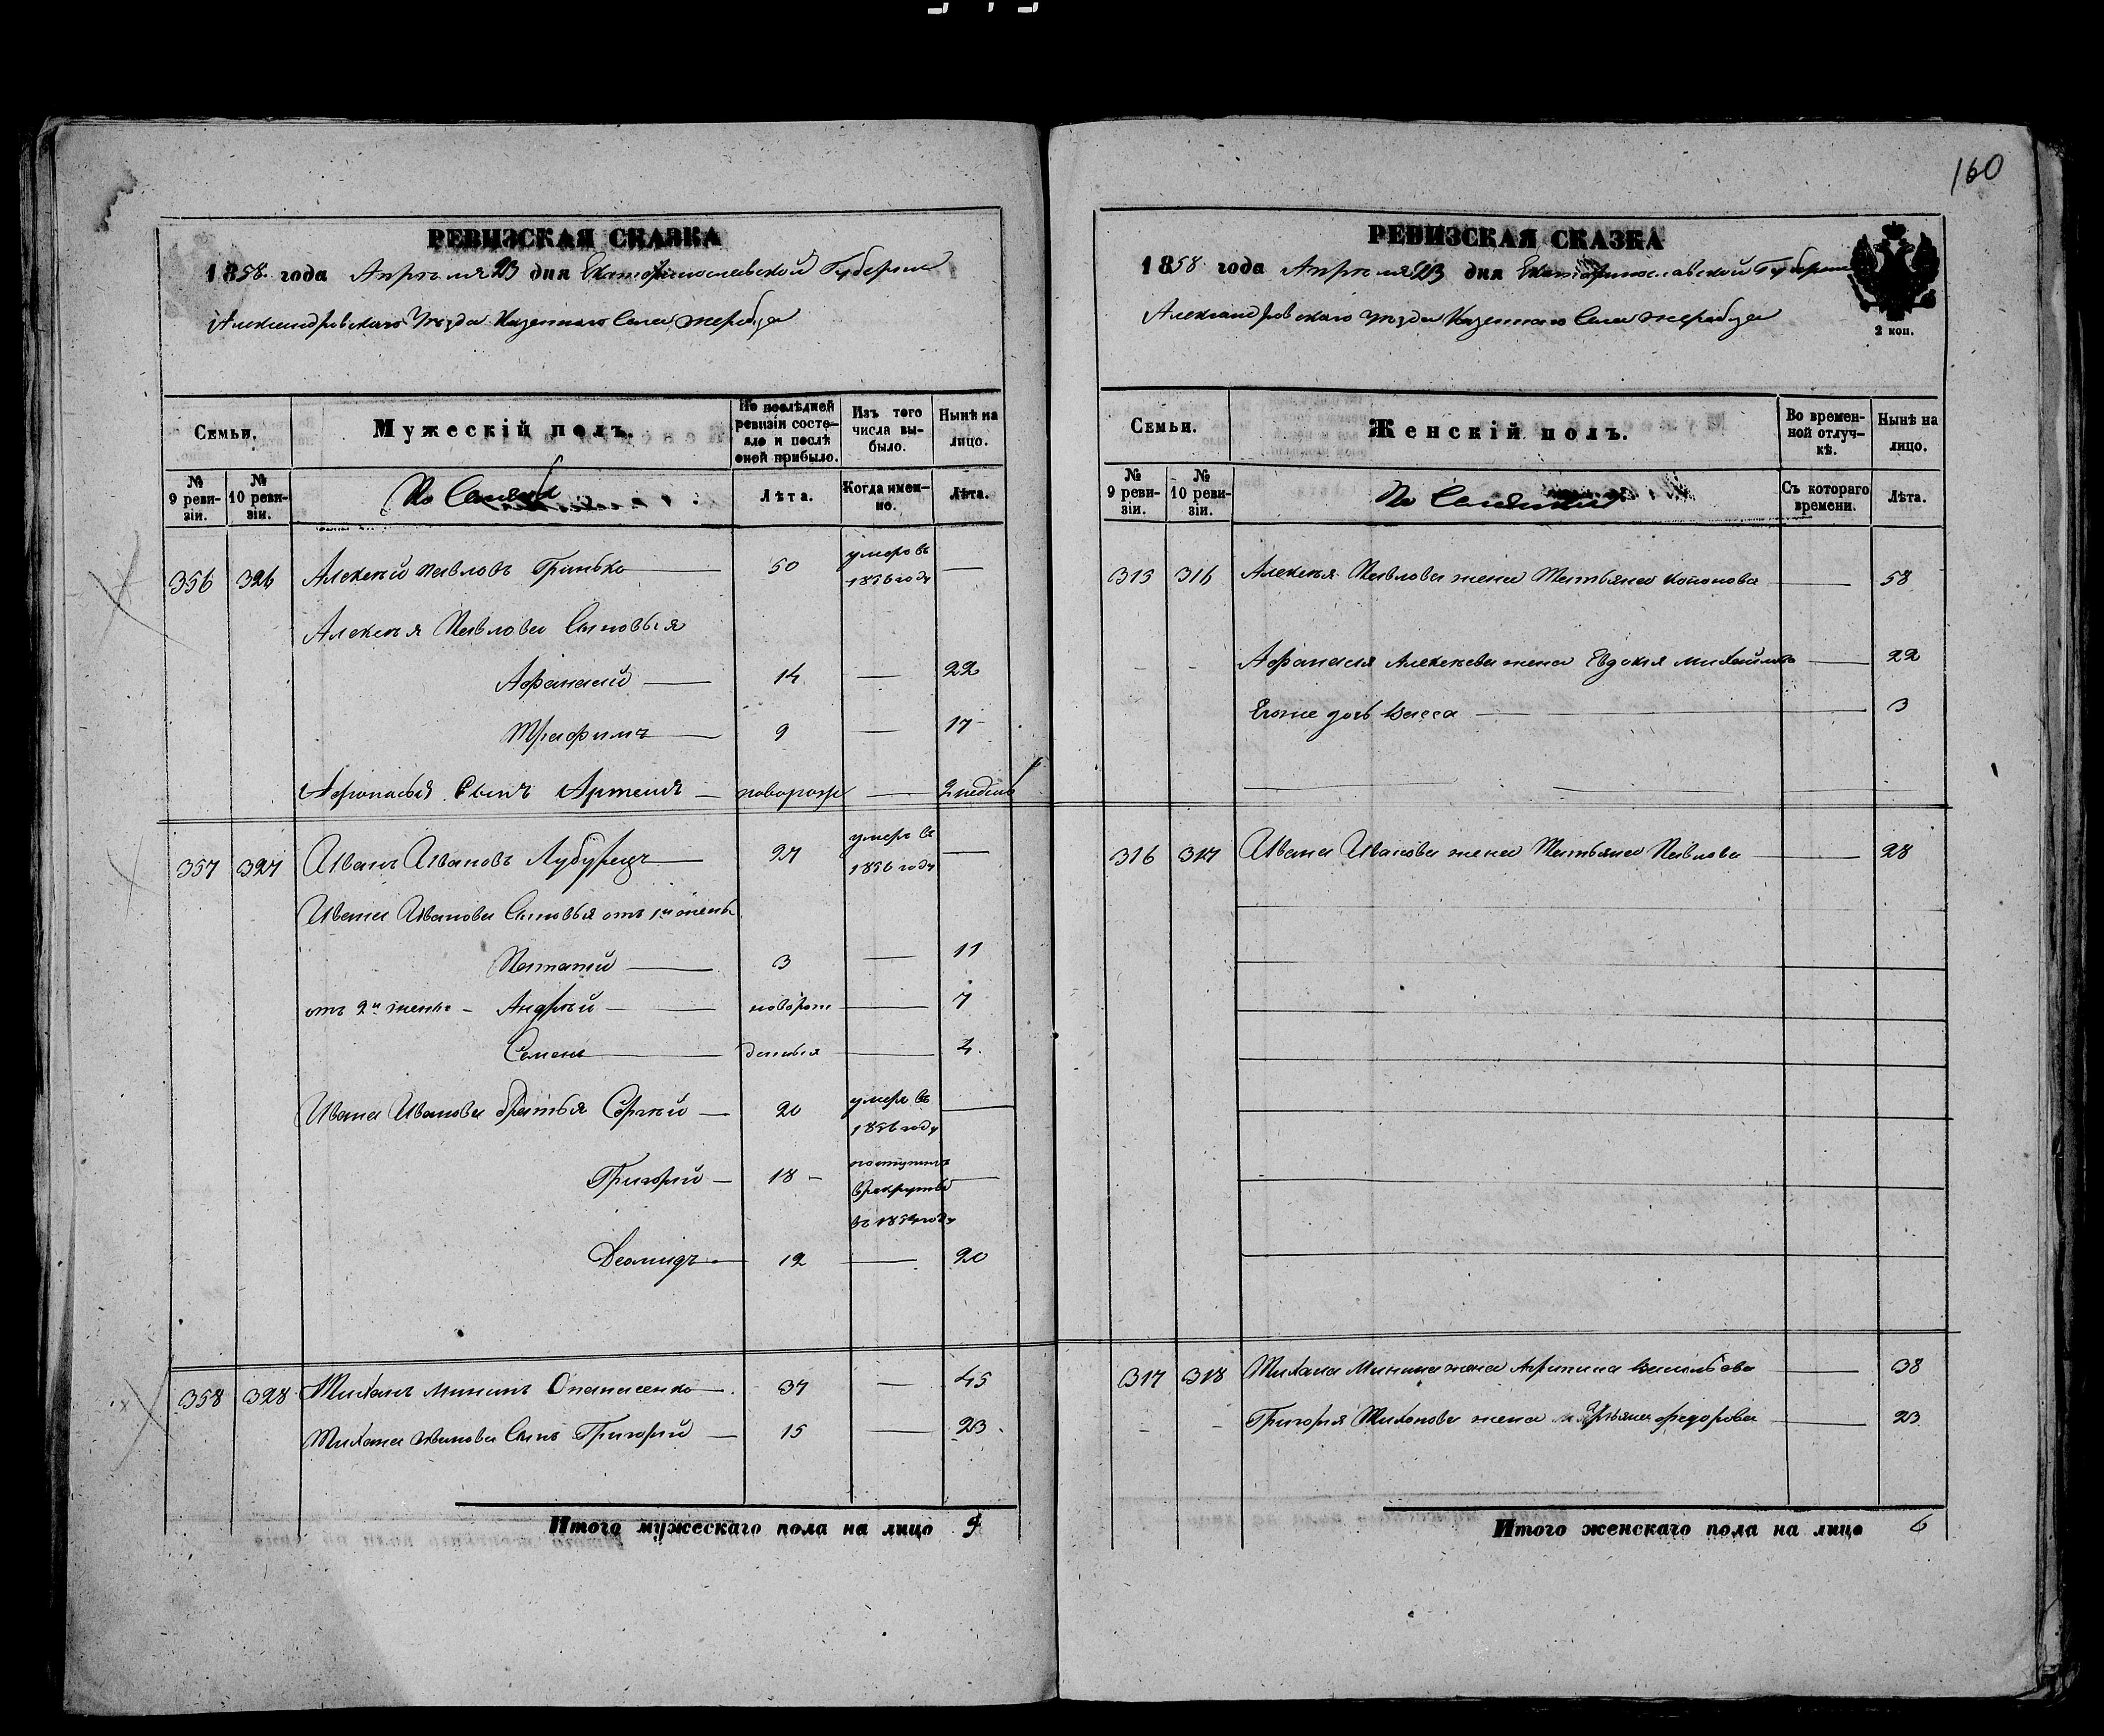 160
РЕВИЗСКАЯ СКАЗКА
1858 года Апреля 23 дня Екатеринославской Губернии
Александровскаго Уезда Казеннаго Села Жеребца
Семьи.
Мужескій полъ.
По последней ревизіи состояло и после оной прибыло.
Изъ того числа выбыло.
Ныне на лицо.
№ 9 ревизіи.
№ 10 ревизіи.
Лета.
Когда именно.
Лета.
356 326 Алексей Павловъ Гринько 50 умеръ въ 1856 году —
Алексея Павлова Сыновья
Афанасий 14 — 22
Трафимъ 9 — 17
Афонасья Сынъ Артемъ — новорож — 2 недель
357 327 Иванъ Ивановъ Лубурецъ 27 умеръ въ 1856 году —
Ивана Ивановa Сыновья отъ 1й жены
3 — 11
отъ 2й жены — Андрей новорож — 7
Семенъ — 4
Ивана Иванова братья Сергей — 20 умеръ въ 1856 году —
Григорий — 18 — поступилъ в рекруты въ 1854 году —
Деомидъ 12 — 20
358 328 Тиханъ Мининъ Опанасенко 37 — 45
Тихана Сынъ Григорий — 15 — 23
Итого мужескаго пола на лицо 9
РЕВИЗСКАЯ СКАЗКА
1858 года Апреля 23 дня Екатеринославской Губернии
Александровскаго Уезда Казеннаго Села Жеребца
2 коп.
Семьи.
Женскій полъ.
Во временной отлучке.
Ныне на лицо.
№ 9 ревизіи.
№ 10 ревизіи.
Съ котораго времени.
Лета.
315 316 Алексея Павлова жена Татьяна Кононова — 58
- - Афанасия Алексеева жена Евдокия Михайлова — 22
Егоже дочь Васса — 3
316 317 Ивана Иванова жена Татьяна Павлова — 28
317 318 Тихана Минина жена Агрипина Васильева — 38
- - Григория Тихонова жена Федорова — 23
Итого женскаго пола на лицо 6